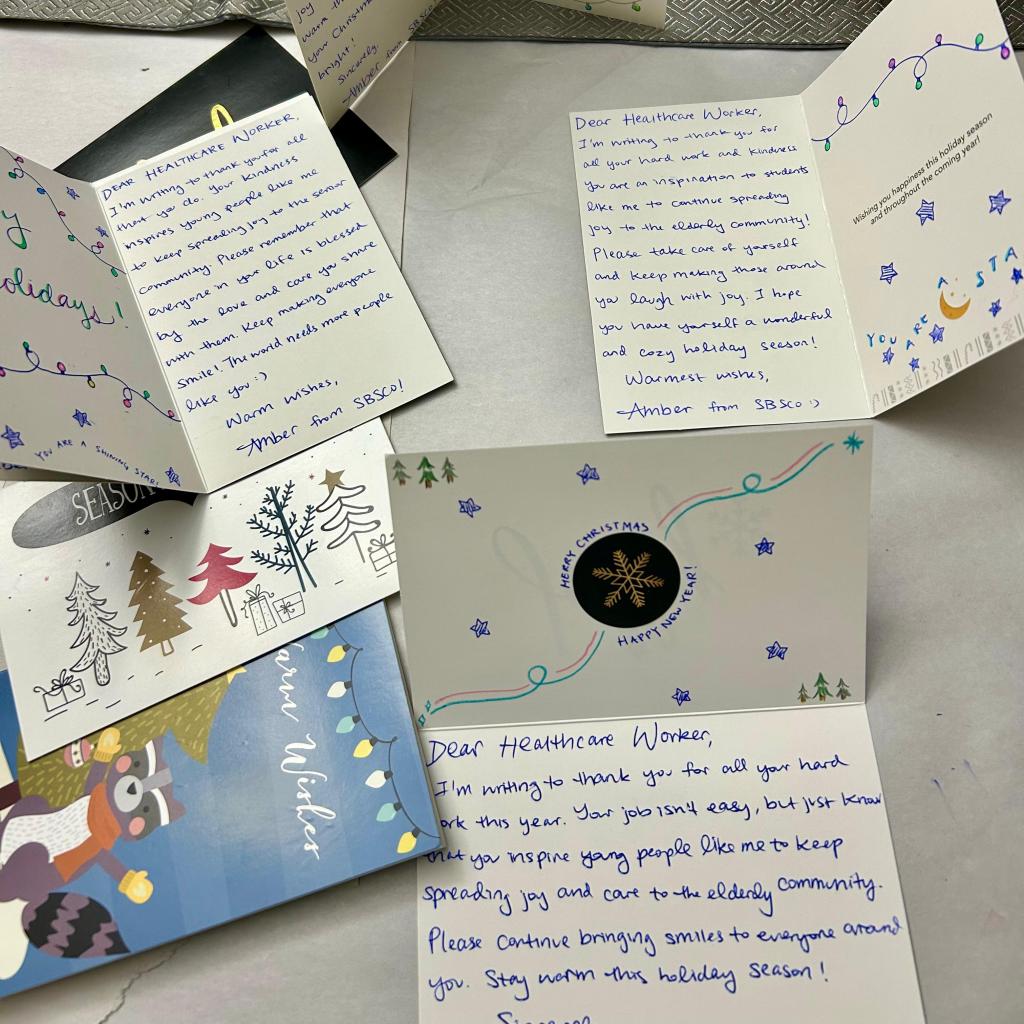 joy
warm
your Christmas
bright!
Sincerely,
Amber from SBSCO
DEAR HEALTHCARE WORKER,
I'm writing to thank you for all
that you do. Your kindness
inspires young people like me
to keep spreading joy to the senior
community. Please remember that
everyone in your life is blessed
by the love and care you share
with them. Keep making everyone
smile! The world needs more people
like you :)
Warm wishes,
Amber from SBSCO!
y
olidays!
YOU ARE A SHINING STAR!
Dear Healthcare Worker,
I'm writing to thank you for
all your hard work and kindness
you are an inspiration to students
like me to continue spreading
joy to the elderly community!
Please take care of yourself
and keep making those around
you laugh with joy. I hope
you have yourself a wonderful
and cozy holiday season!
Warmest wishes,
Amber from SBSCo :)
Wishing you happiness this holiday season
and throughout the coming year!
YOU ARE A STA
SEASON
Warm Wishes
MERRY CHRISTMAS
HAPPY NEW YEAR!
Dear Healthcare Worker,
I'm writing to thank you for all your hard
ork this year. Your job isn't easy, but just know
that you inspire young people like me to keep
spreading joy and care to the elderly community.
Please continue bringing smiles to everyone around
you. Stay warm this holiday season!